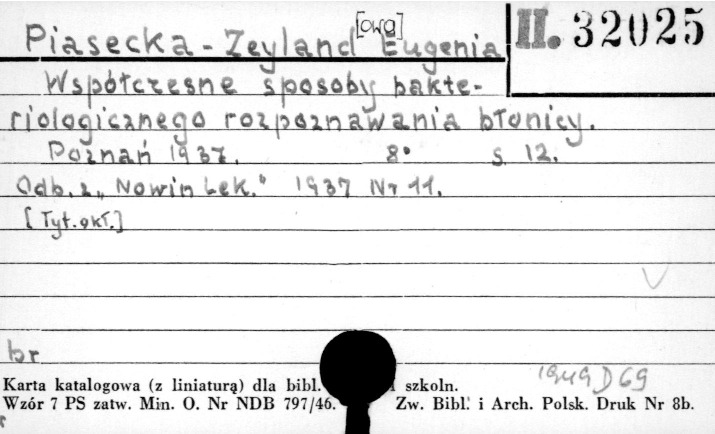 Piasecka-Zeyland[owa] Eugenia
II. 32025
Współczesne sposoby bakte-
riologicznego rozpoznawania błonicy.
Poznań 1937. 8° s. 12.
Odb. z „Nowin Lek." 1937 Nr 11.
[Tyt. okł.]
br
1949 D 69
Karta katalogowa (z liniaturą) dla bibl. szkoln.
Wzór 7 PS zatw. Min. O. Nr NDB 797/46. Zw. Bibl. i Arch. Polsk. Druk Nr 8b.